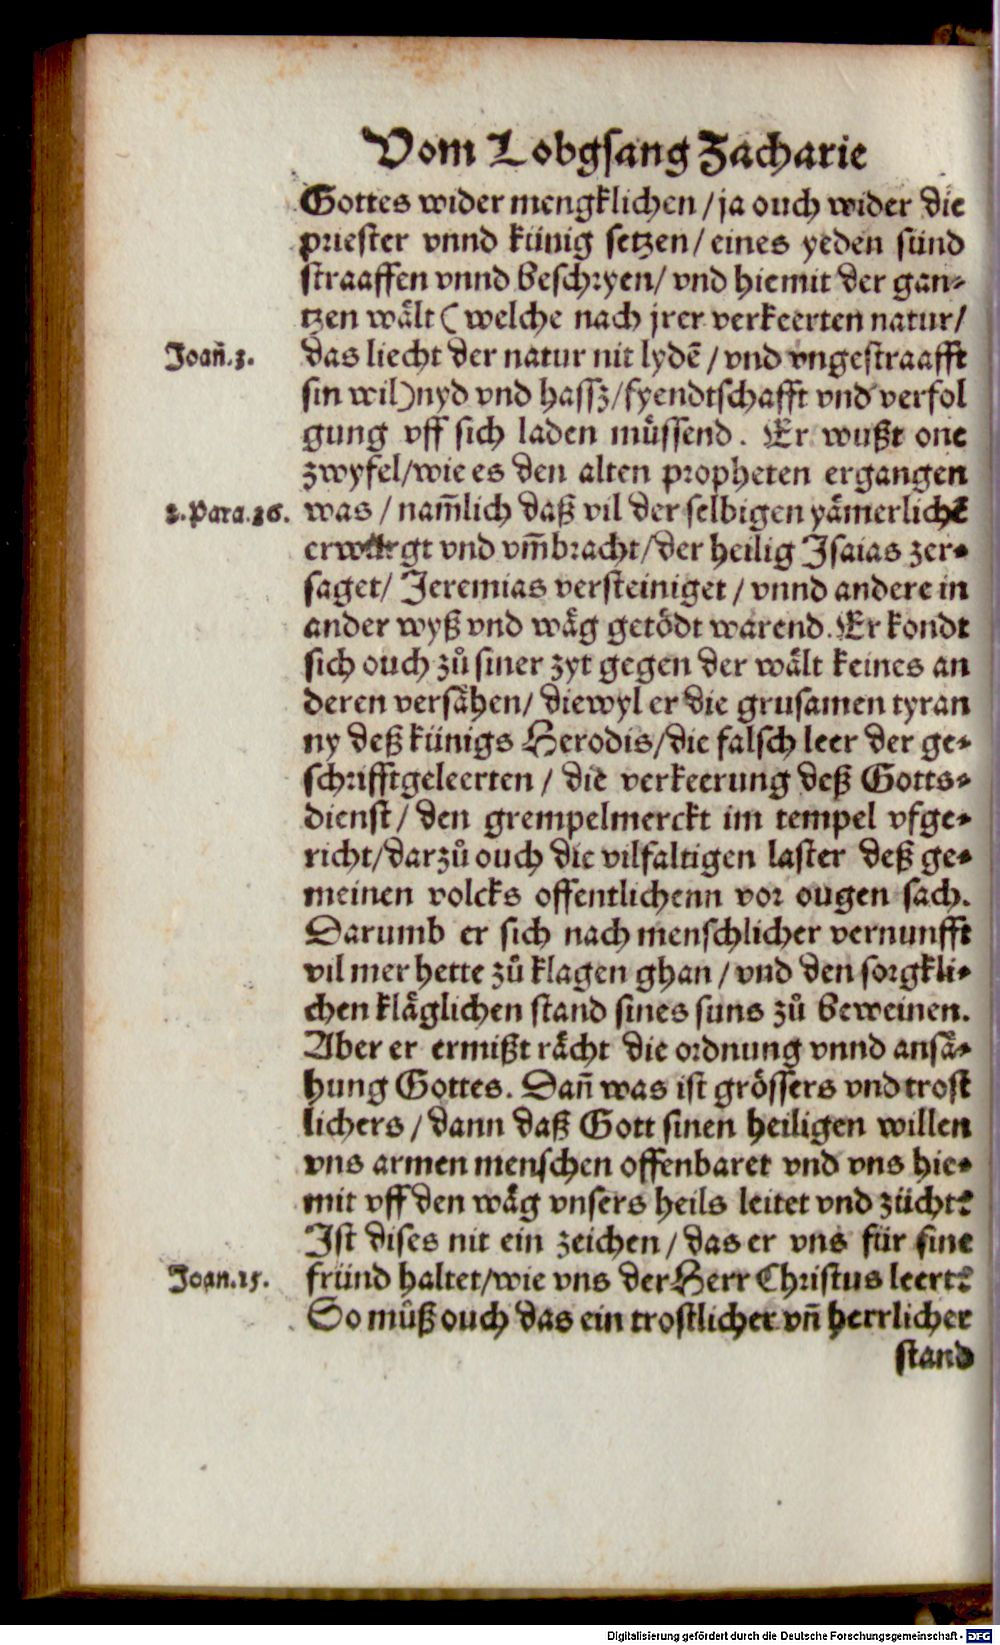 Vom Lobgsang Zacharie
Gottes wider mengklichen / ja ouch wider die
priester vnnd künig setzen / eines yeden sünd
straaffen vnnd beschryen / vnd hiemit der gan⸗
tzen wält ( welche nach jrer verkeerten natur /
Joañ.3. das liecht der natur nit lydē / vnd vngestraafft
sin wil) nyd vnd hassz / fyendtschafft vnd verfol
gung vff sich laden müssend. Er wußt one
zwyfel / wie es den alten propheten ergangen
2.Para.36. was / nam̃lich daß vil der selbigen yämerlichē
erwürgt vnd vm̃bracht / der heilig Isaias zer⸗
saget / Jeremias versteiniget / vnnd andere in
ander wyß vnd wäg getödt warend. Er kondt
sich ouch zů siner zyt gegen der wält keines an
deren versähen / diewyl er die grusamen tyran
ny deß künigs Herodis / die falsch leer der ge⸗
schrifftgeleerten / die verkeerung deß Gotts⸗
dienst / den grempelmerckt im tempel vfge⸗
richt / darzů ouch die vilfaltigen laster deß ge⸗
meinen volcks offentlichenn vor ougen sach.
Darumb er sich nach menschlicher vernunfft
vil mer hette zů klagen ghan / vnd den sorgkli⸗
chen kläglichen stand sines suns zů beweinen.
Aber er ermißt rächt die ordnung vnnd ansä⸗
hung Gottes. Dañ was ist grössers vnd trost
lichers / dann daß Gott sinen heiligen willen
vns armen menschen offenbaret vnd vns hie⸗
mit vff den wäg vnsers heils leitet vnd zücht?
Ist dises nit ein zeichen / das er vns für sine
Joan.15. fründ haltet / wie vns der Herr Christus leert?
So můß ouch das ein trostlicher vñ herrlicher
stand
Digitalisierung gefördert durch die Deutsche Forschungsgemeinschaft - DFG